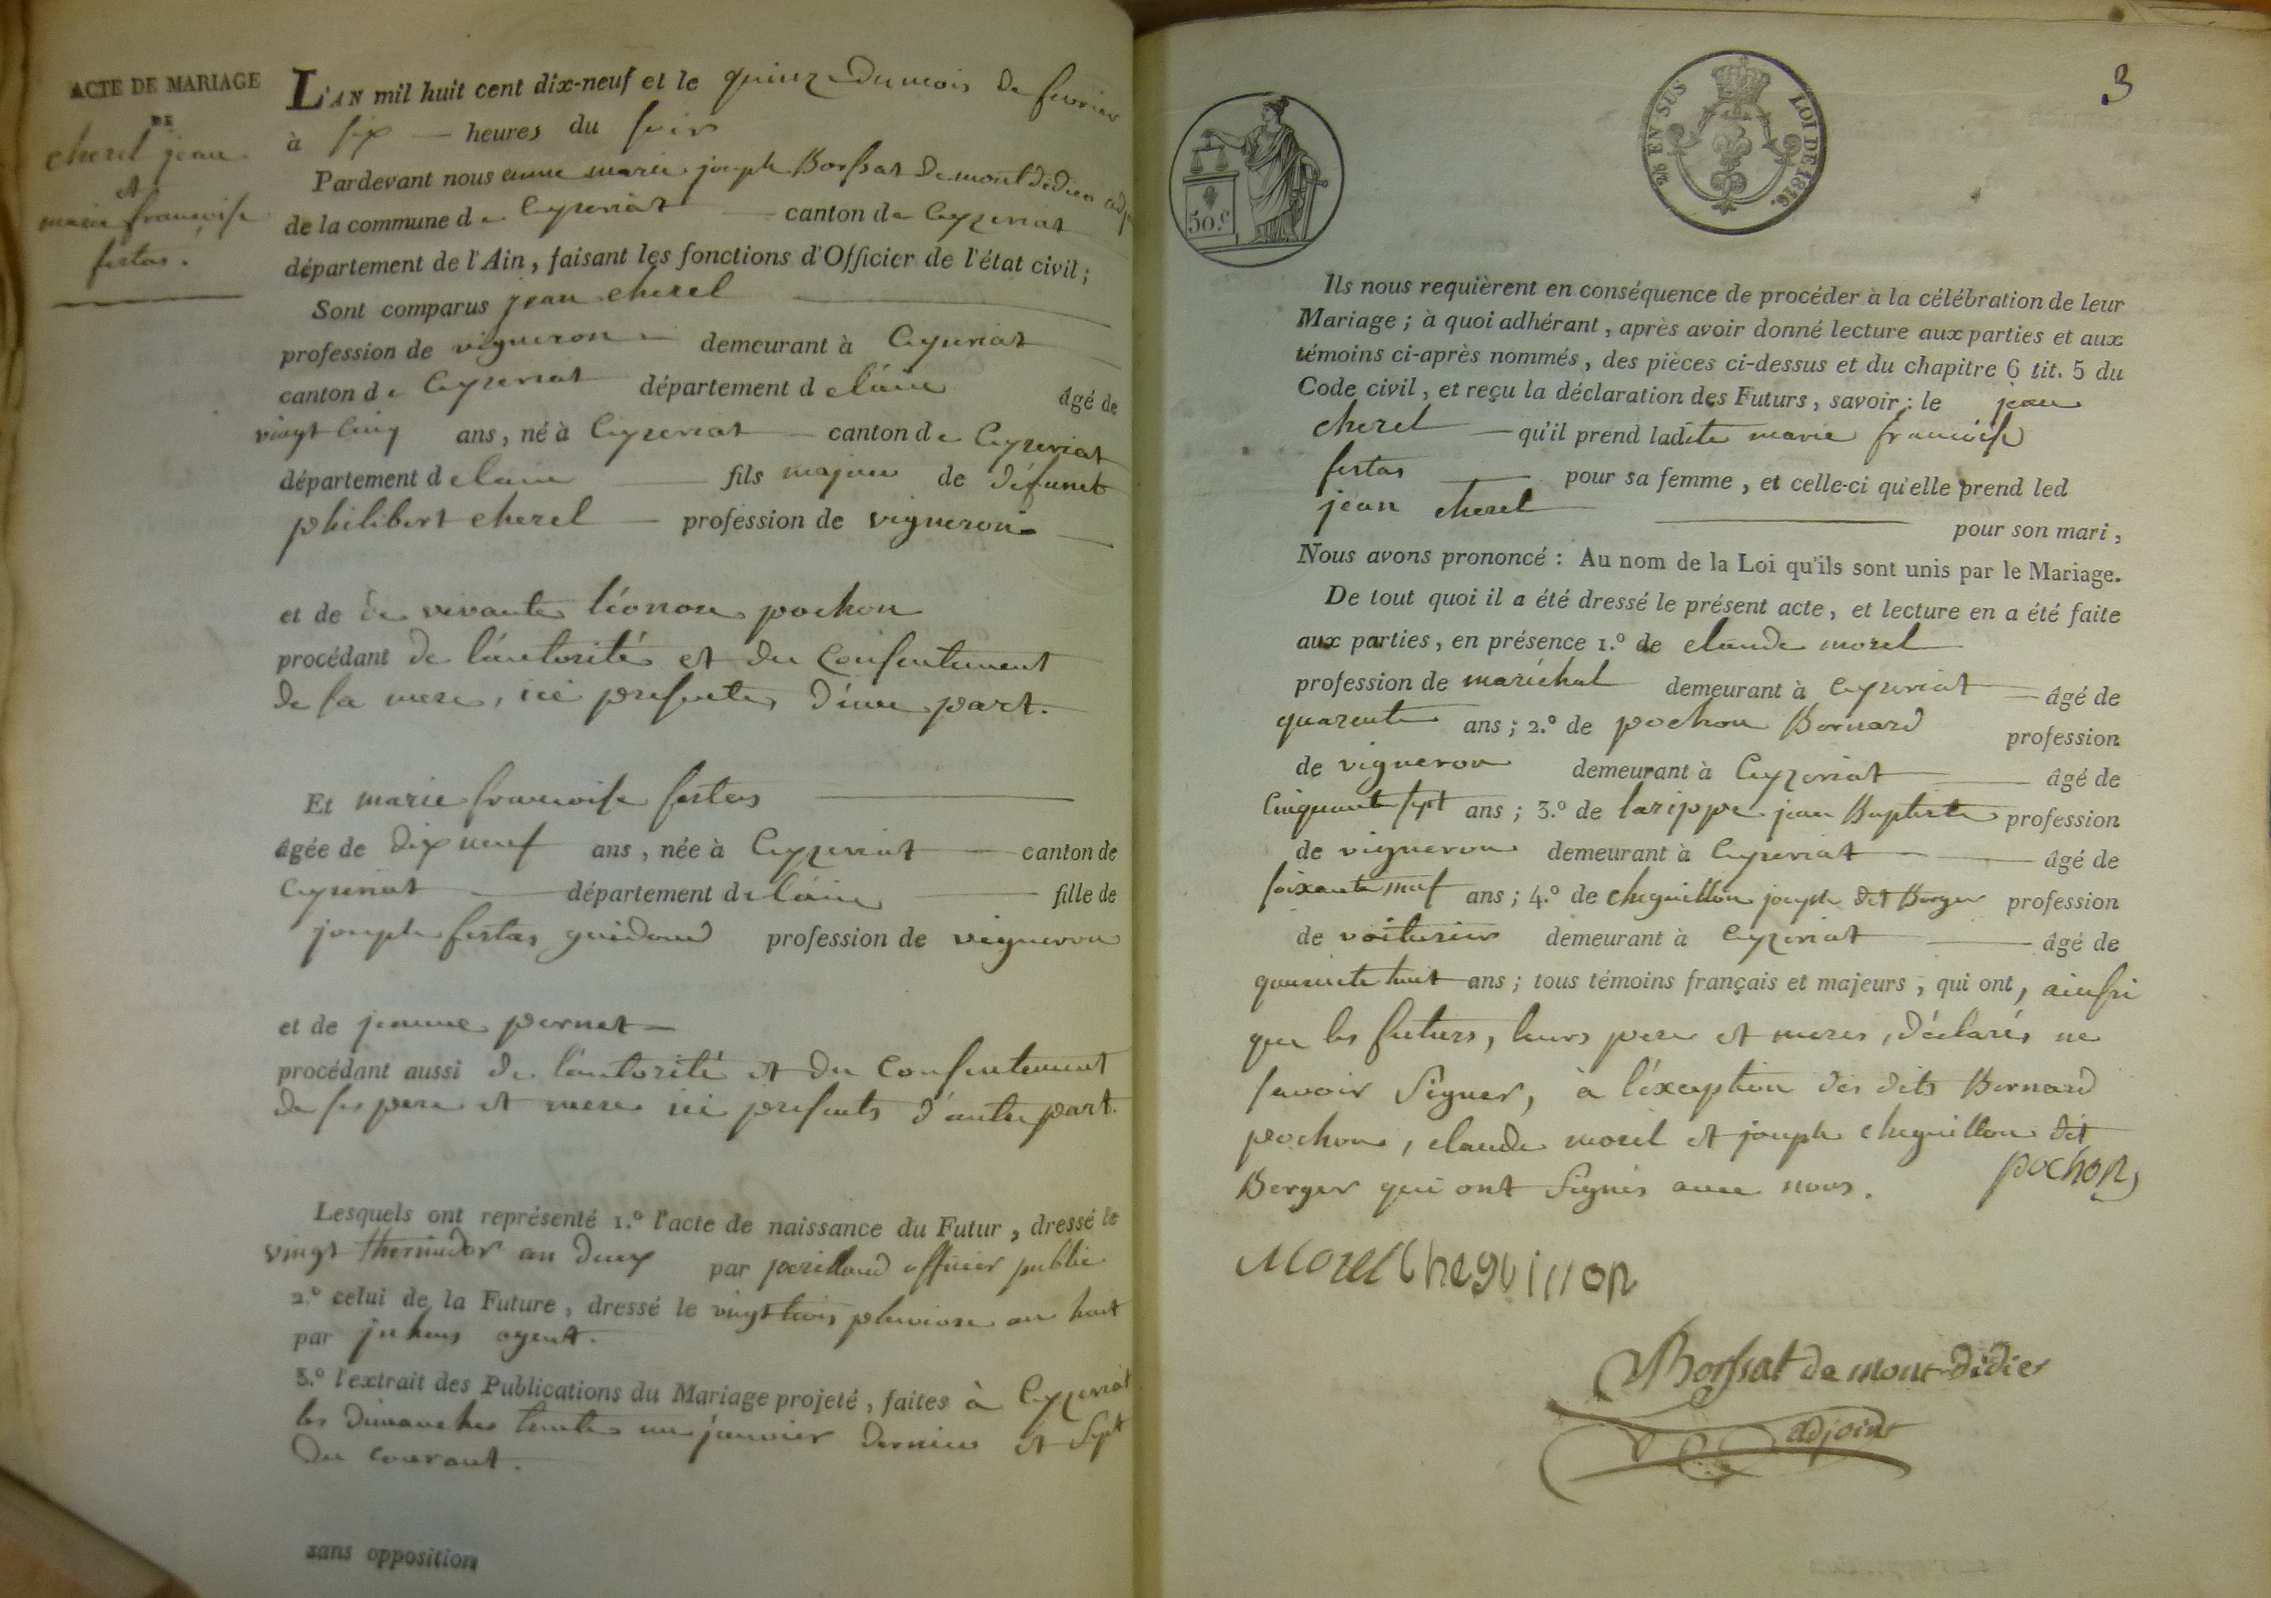 ACTE DE MARIAGE
DE
cherel jean
et
marie francoise
festas.
L'AN mil huit cent dix-neuf et le quinze du mois de fevrier
à six heures du soir
Pardevant nous anne marie joseph Borssat de montdidier adj
de la commune de Ceyzeriat canton de Ceyzeriat
département de l'Ain, faisant les fonctions d'Officier de l'état civil;
Sont comparus jean cherel
profession de vigneron demeurant à Ceyzeriat
canton de Ceyzeriat département de l'ain âgé de
vingt cinq ans, né à Ceyzeriat canton de Ceyzeriat
département de l'ain fils majeur de défunct
philibert cherel profession de vigneron
et de de vivante léonore pochon
procédant de l'autorité et du consentement
de sa mere, ici presente, d'une part.
Et marie francoise festas
âgée de dix neuf ans, née à Ceyzeriat canton de
Ceyzeriat département de l'ain fille de
joseph festas guidoud profession de vigneron
et de jeanne pernet
procédant aussi de l'autorité et du consentement
de ses pere et mere ici presents d'autre part.
Lesquels ont représenté 1.º l'acte de naissance du Futur, dressé le
vingt thermidor an deux par perilloud officier public
2.º celui de la Future, dressé le vingt trois pluviose an huit
par agent.
3.º l'extrait des Publications du Mariage projeté, faites à Ceyzeriat
les dimanches trente un janvier dernier et sept
du courant.
sans opposition
3
50.c
28 EV SUS LOI DE 1816.
Ils nous requièrent en conséquence de procéder à la célébration de leur
Mariage; à quoi adhérant, après avoir donné lecture aux parties et aux
témoins ci-après nommés, des pièces ci-dessus et du chapitre 6 tit. 5 du
Code civil, et reçu la déclaration des Futurs, savoir: le jean
cherel qu'il prend ladite marie francoise
festas pour sa femme, et celle-ci qu'elle prend led
jean cherel pour son mari,
Nous avons prononcé: Au nom de la Loi qu'ils sont unis par le Mariage.
De tout quoi il a été dressé le présent acte, et lecture en a été faite
aux parties, en présence 1.º de claude morel
profession de maréchal demeurant à Ceyzeriat âgé de
quarente ans; 2.º de pochon Bernard profession
de vigneron demeurant à Ceyzeriat âgé de
cinquante sept ans; 3.º de larippe jean Baptiste profession
de vigneron demeurant à Ceyzeriat âgé de
soixante neuf ans; 4.º de cheguillon joseph dit Berger profession
de voiturier demeurant à Ceyzeriat âgé de
quarente huit ans; tous témoins français et majeurs, qui ont, ainsi
que les futurs, leurs pere et meres, déclarés ne
savoir signer, à l'exception des dits Bernard
pochon, claude morel et joseph cheguillon dit
Berger qui ont signés avec nous.
pochon
Morel Cheguillon
Borssat de mont-didier
adjoint